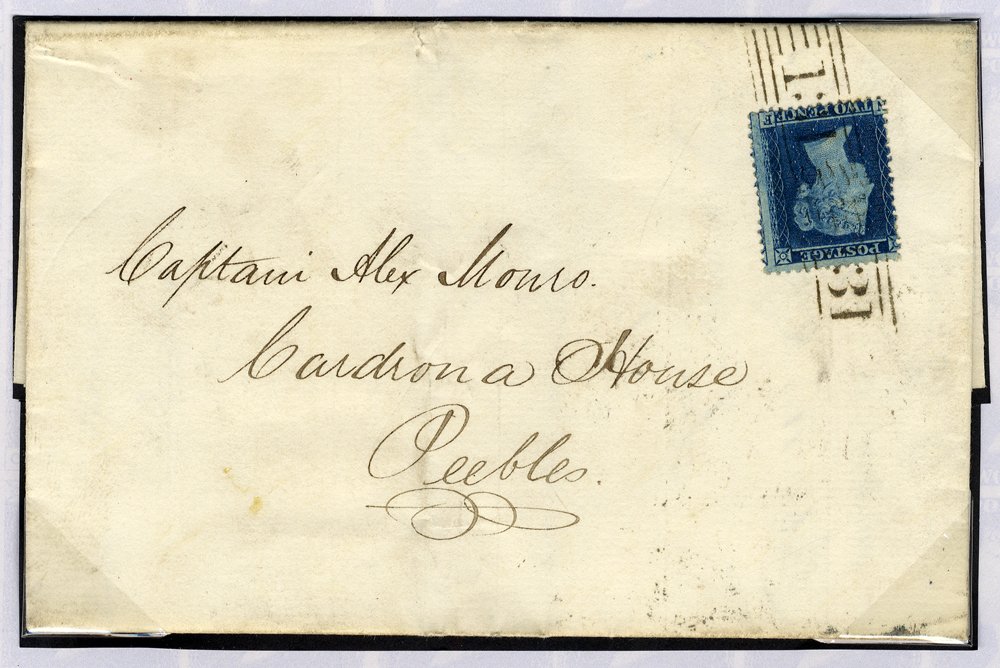 Captain Alex Monro.
Cardrona House
Peebles.
TWO PENCE
POSTAGE
131